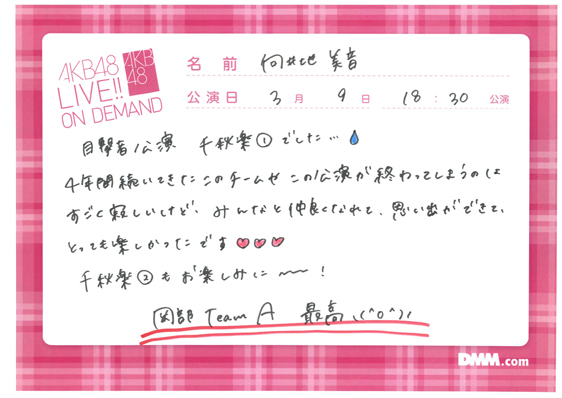 AKB48
LIVE!!
ON DEMAND
AKB
48
名前 向井地 美音
公演日 3月 9日 18:30 公演
目撃者公演 千秋楽①でした…
4年間続いてきたこのチームやこの公演が終わってしまうのは
すごく寂しいけど、みんなと仲良くなれて、思い出ができて、
とっても楽しかったです
千秋楽②もお楽しみに〜〜!
岡部 Team A 最高\(^o^)/
DMM.com